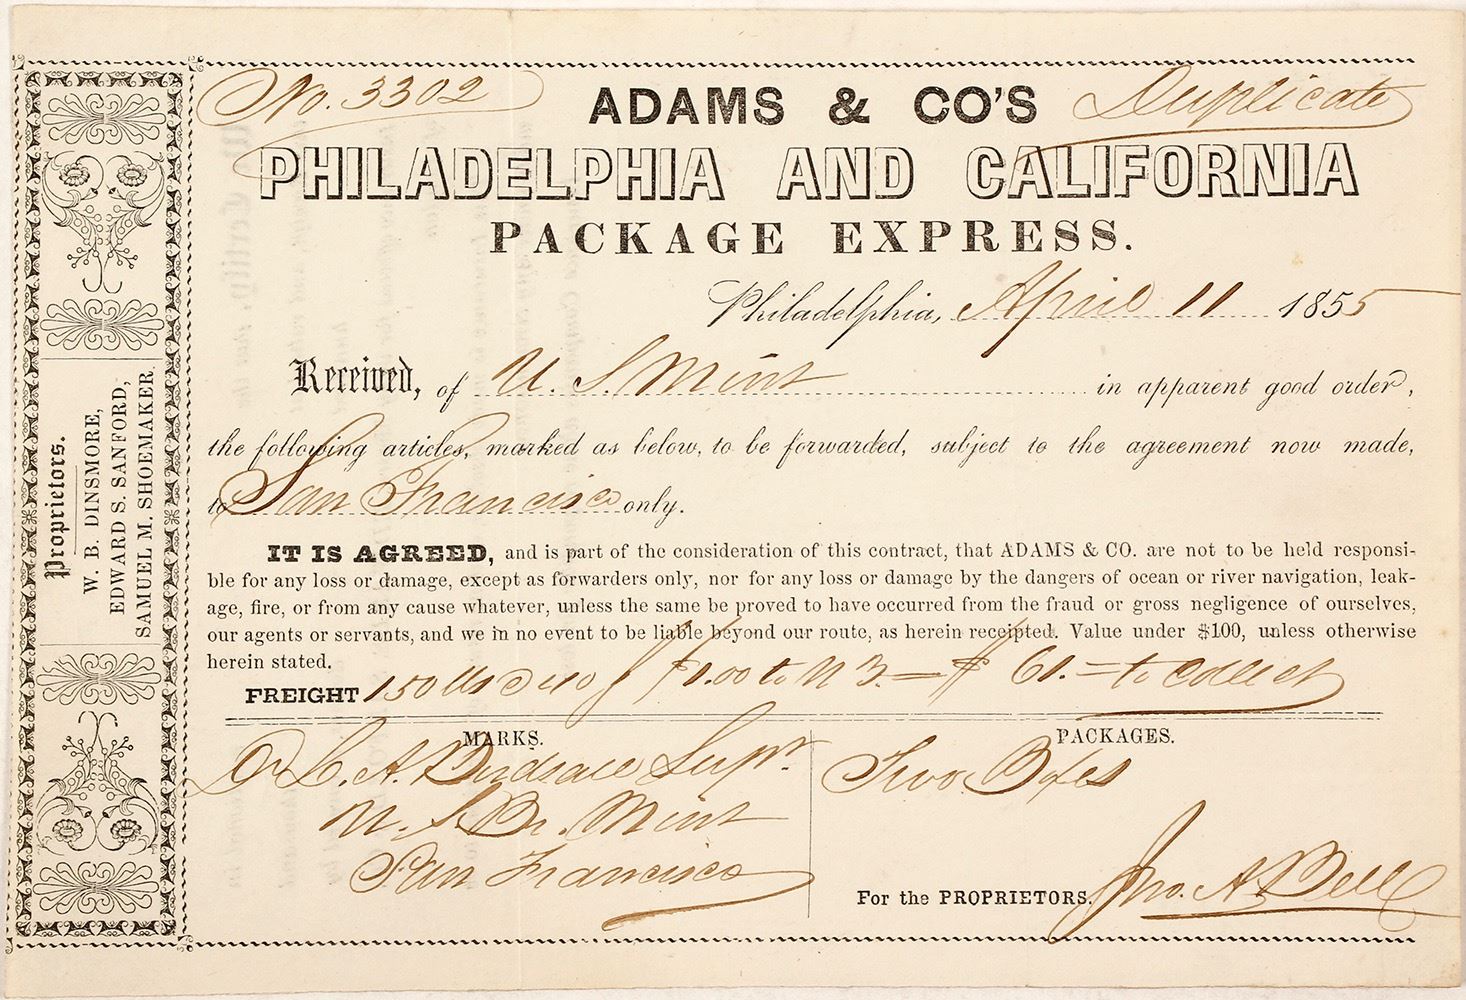 No. 3302
ADAMS & CO'S
Duplicate
PHILADELPHIA AND CALIFORNIA
PACKAGE EXPRESS.
Philadelphia, April 11 1855
Received, of U. S. Mint in apparent good order,
the following articles, marked as below, to be forwarded, subject to the agreement now made,
to San Francisco only.
IT IS AGREED, and is part of the consideration of this contract, that ADAMS & CO. are not to be held responsi-
ble for any loss or damage, except as forwarders only, nor for any loss or damage by the dangers of ocean or river navigation, leak-
age, fire, or from any cause whatever, unless the same be proved to have occurred from the fraud or gross negligence of ourselves,
our agents or servants, and we in no event to be liable beyond our route, as herein receipted. Value under $100, unless otherwise
herein stated.
FREIGHT 150 lbs @ 40 $1.00 to N 3. — $ 61. — to Collect
MARKS.
PACKAGES.
L. A. Birdsall Supt.
Two Boxes
U. S. Br. Mint
San Francisco
For the PROPRIETORS. Jno. A. Bell
Proprietors.
W. B. DINSMORE,
EDWARD S. SANFORD,
SAMUEL M. SHOEMAKER.